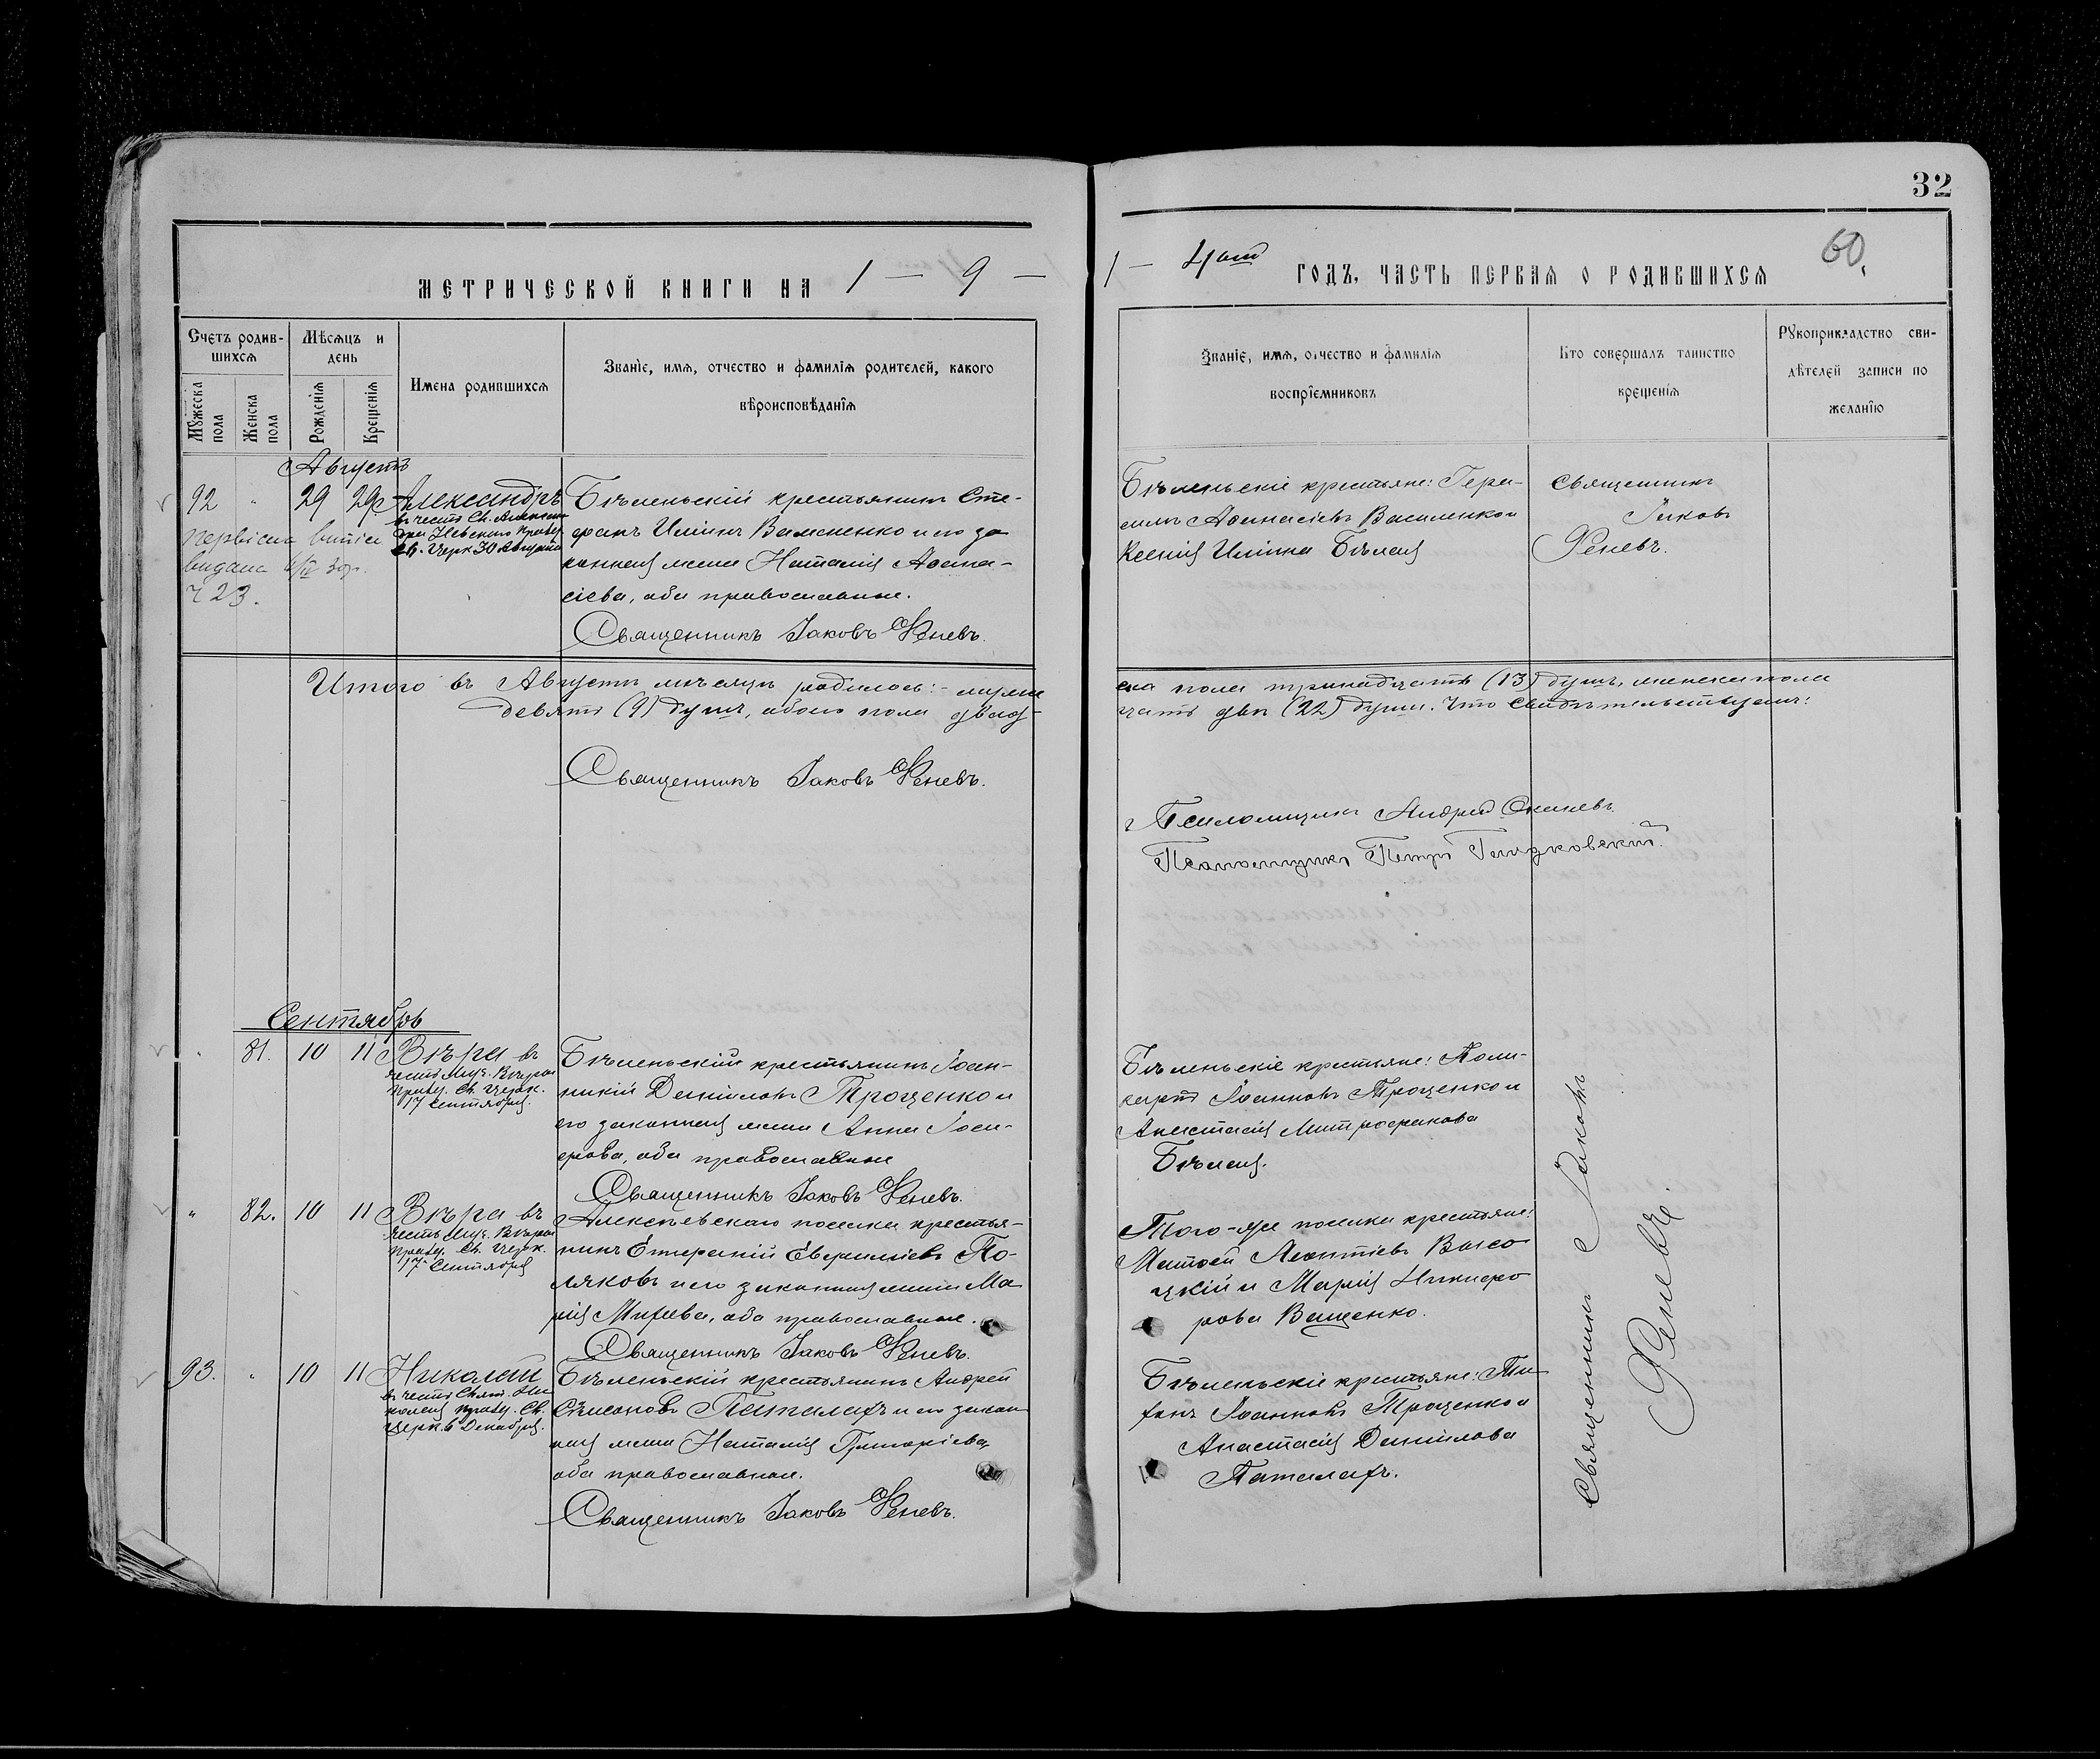 32
60.
МЕТРИЧЕСКОЙ КНИГИ НА 1 — 9 —
1 — 4 ый ГОДЪ, ЧАСТЬ ПЕРВАЯ О РОДИВШИХСЯ
Счетъ родив-
шихся
Мѣсяцъ и
день
Мужеска
пола
Женска
пола
Рожденія
Крещенія
Имена родившихся
Званіе, имя, отчество и фамилія родителей, какого
вѣроисповѣданія
Званіе, имя, отчество и фамилія
воспріемниковъ
Кто совершалъ таинство
крещенія
Рукоприкладство сви-
дѣтелей записи по
желанію
Августъ
92 " 29 29 Александръ
въ честь Св. Алексан
дра Невскаго празд.
св. Церк 30 Августа
первісна витіс
видана 6/IV 30р.
ч 23.
Бѣленьскій крестьянинъ Сте-
фанъ Иліинъ Василенко и его за
конная жена Наталія Аѳана-
сіева, оба православные.
Священникъ Іаковъ Феневъ.
Бѣленьскіе крестьяне: Гера-
симъ Аѳанасіевъ Василенко и
Ксенія Иліина Бѣлая
Священникъ
Іаковъ
Феневъ.
Итого въ Августѣ мѣсяцѣ родилось: – муже
ска пола тринадцать (13) душъ, женска пола
девять (9) душъ, обоего пола двад-
цать двѣ (22) души. Что свидѣтельствуемъ:
Священникъ Іаковъ Феневъ.
Псаломщикъ Андрей
Псаломщикъ Петръ
Сентябрь
" 81. 10 11 Вѣра въ
честь Муч. Вѣры
празд. Св. Церк.
17 Сентября.
Бѣленьскій крестьянинъ Іоан-
никій Даніиловъ Трощенко и
его законная жена Анна Іоси-
фова, оба православные
Священникъ Іаковъ Феневъ.
Бѣленьскіе крестьяне: Поли-
карпъ Іоанновъ Трощенко и
Анастасія Митрофанова
Бѣлая.
" 82. 10 11 Вѣра въ
честь Муч. Вѣры
празд. Св. Церк.
17 Сентября
Алексѣевскаго поселка крестья-
нинъ Евѳиміевъ По-
ляковъ и его законная жена Ма
рія Михеева, оба православные.
Священникъ Іаковъ Феневъ.
Того-же поселка крестьяне:
Матѳей Леонтіевъ Высо
цкій и Марія Никифо
рова Ващенко.
93. " 10 11 Николай
въ честь Свят. Ни
колая празд. Св.
Церк. 6 Декабря.
Бѣленьскій крестьянинъ Андрей
Симоновъ Паталахъ и его закон
ная жена Наталія Григоріева,
оба православные.
Священникъ Іаковъ Феневъ.
Бѣленьскіе крестьяне: Ти
хонъ Іоанновъ Трощенко и
Анастасія Даніилова
Паталахъ.
Священникъ Іаковъ
Феневъ.